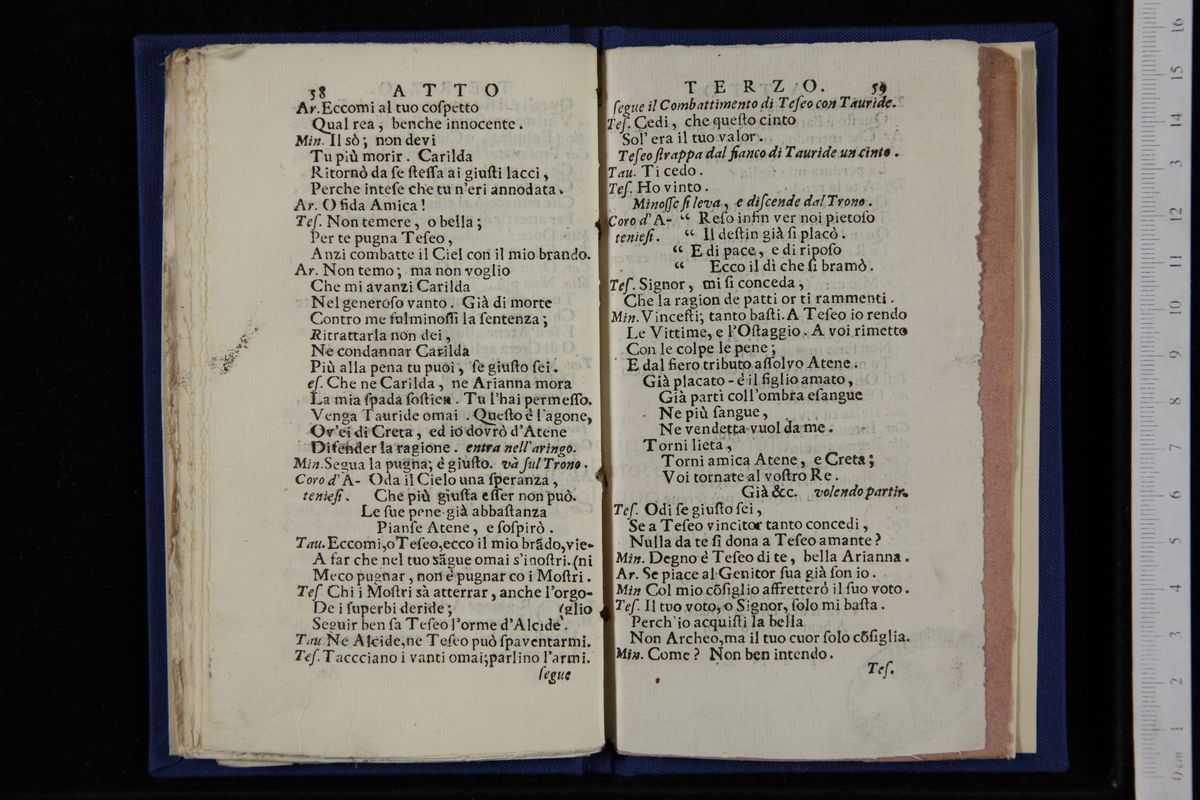 58 ATTO
Ar. Eccomi al tuo coſpetto
Qual rea, benche innocente.
Min. Il sò; non devi
Tu più morir. Carilda
Ritornò da ſe ſteſſa ai giuſti lacci,
Perche inteſe che tu n'eri annodata.
Ar. O fida Amica!
Teſ. Non temere, o bella;
Per te pugna Teſeo,
Anzi combatte il Ciel con il mio brando.
Ar. Non temo; ma non voglio
Che mi avanzi Carilda
Nel generoſo vanto. Già di morte
Contro me fulminoſſi la ſentenza;
Ritrattarla non dei,
Ne condannar Carilda
Più alla pena tu puoi, ſe giuſto ſei.
eſ. Che ne Carilda, ne Arianna mora
La mia ſpada ſoſtien. Tu l'hai permeſſo.
Venga Tauride omai. Queſto è l'agone,
Ov'ei di Creta, ed io dovrò d'Atene
Difender la ragione. entra nell'aringo.
Min. Segua la pugna; è giuſto. và ſul Trono.
Coro d'A- Oda il Cielo una ſperanza,
tenieſi. Che più giuſta eſſer non può.
Le ſue pene già abbaſtanza
Pianſe Atene, e ſoſpirò.
Tau. Eccomi, o Teſeo, ecco il mio brãdo, vie-
A far che nel tuo sãgue omai s'inoſtri. (ni
Meco pugnar, non è pugnar co i Moſtri.
Teſ Chi i Moſtri sà atterrar, anche l'orgo-
De i ſuperbi deride; (glio
Seguir ben ſa Teſeo l'orme d'Alcide.
Tau Ne Alcide, ne Teſeo può ſpaventarmi.
Teſ. Taccciano i vanti omai; parlino l'armi.
ſegue
TERZO. 59
ſegue il Combattimento di Teſeo con Tauride.
Teſ. Cedi, che queſto cinto
Sol' era il tuo valor.
Teſeo ſtrappa dal fianco di Tauride un cinto.
Tau. Ti cedo.
Teſ. Ho vinto.
Minoſſe ſi leva, e diſcende dal Trono.
Coro d'A- “ Reſo infin ver noi pietoſo
tenieſi. “ Il deſtin già ſi placò.
“ E di pace, e di ripoſo
“ Ecco il dì che ſi bramò.
Teſ. Signor, mi ſi conceda,
Che la ragion de patti or ti rammenti.
Min. Vinceſti; tanto baſti. A Teſeo io rendo
Le Vittime, e l'Oſtaggio. A voi rimetto
Con le colpe le pene;
E dal fiero tributo aſſolvo Atene.
Già placato - è il figlio amato,
Già partì coll'ombra eſangue
Ne più ſangue,
Ne vendetta vuol da me.
Torni lieta,
Torni amica Atene, e Creta;
Voi tornate al voſtro Re.
Già &c. volendo partir.
Teſ. Odi ſe giuſto ſei,
Se a Teſeo vincitor tanto concedi,
Nulla da te ſi dona a Teſeo amante?
Min. Degno è Teſeo di te, bella Arianna.
Ar. Se piace al Genitor ſua già ſon io.
Min Col mio cõſiglio affretterò il ſuo voto.
Teſ. Il tuo voto, o Signor, ſolo mi baſta.
Perch'io acquiſti la bella
Non Archeo, ma il tuo cuor ſolo cõſiglia.
Min. Come? Non ben intendo.
Teſ.